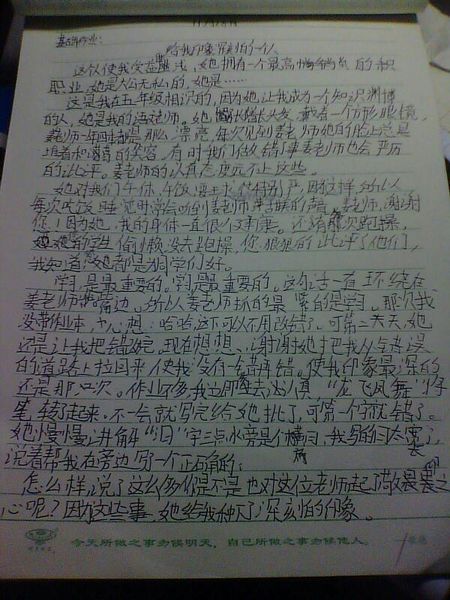 基础作业:
给我印象最深的一个人
这个使我受益匪浅,她拥有一个最高尚的
职业,她是大公无私的,她是……
这是我在五年级相识的,因为她让我成为一个知识渊博
的人,她是我的语文老师。她长头发,戴着一个方形眼镜,
姜老师一年四季都是那么漂亮,每次见到姜老师她的脸上总是
挂着和蔼的笑容。有时我们做错事姜老师也会严厉
的批评。姜老师的认真态度远不止这些。
她对我们午休、午饭要求特别严,因这样所以
每次吃饭睡觉时常会听到姜老师的声音。姜老师,谢谢
您!因为她,我的身体一直很健康。还有每次跑操,
她的学生偷懒没去跑操,您狠狠的批评了他们,
我知道您她都是为同学们好。
学习是最重要的,学习是最重要的,这句话一直环绕在
姜老师嘴边。所以姜老师抓的最紧的是学习。那次我
没带作业本,心想:哈哈这下可以不用改错了。可第二天,她
还是让我把错改完,现在想想,谢谢她才把我从与错误
的道路上拉回来使我没有一错再错。使我印象最深的
还是那一次。作业不多,我立即进去认真“龙飞凤舞”挥
笔,转了起来,不一会就写完给她批了,可第一个字就错了。
她慢慢讲解“汩”字三点水旁是个横扁,我写的日太宽了,
说着帮我在旁边写一个正确的;
怎么样,说了这么多你是不是也对这位老师起了敬畏之
心呢?因为这些事,她给我种下了深刻的印象。
今天所做之事勿候明天,自己所做之事勿候他人。